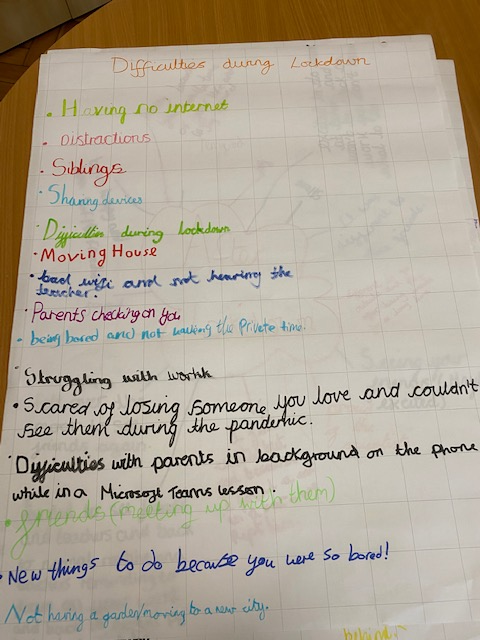 Difficulties during Lockdown
• Having no internet
• Distractions
• Siblings
• Sharing devices
• Difficulties during lockdown
• Moving House
• bad wifi and not hearing the
teacher.
• Parents checking on you
- being bored and not having the Private time.
• Struggling with workk
• Scared of losing someone you love and couldn't
see them during the pandemic.
• Difficulties with parents in background on the phone
while in a Microsoft Teams lesson.
• friends (meeting up with them)
• New things to do because you were so bored!
Not having a garden/moving to a new city.
behind